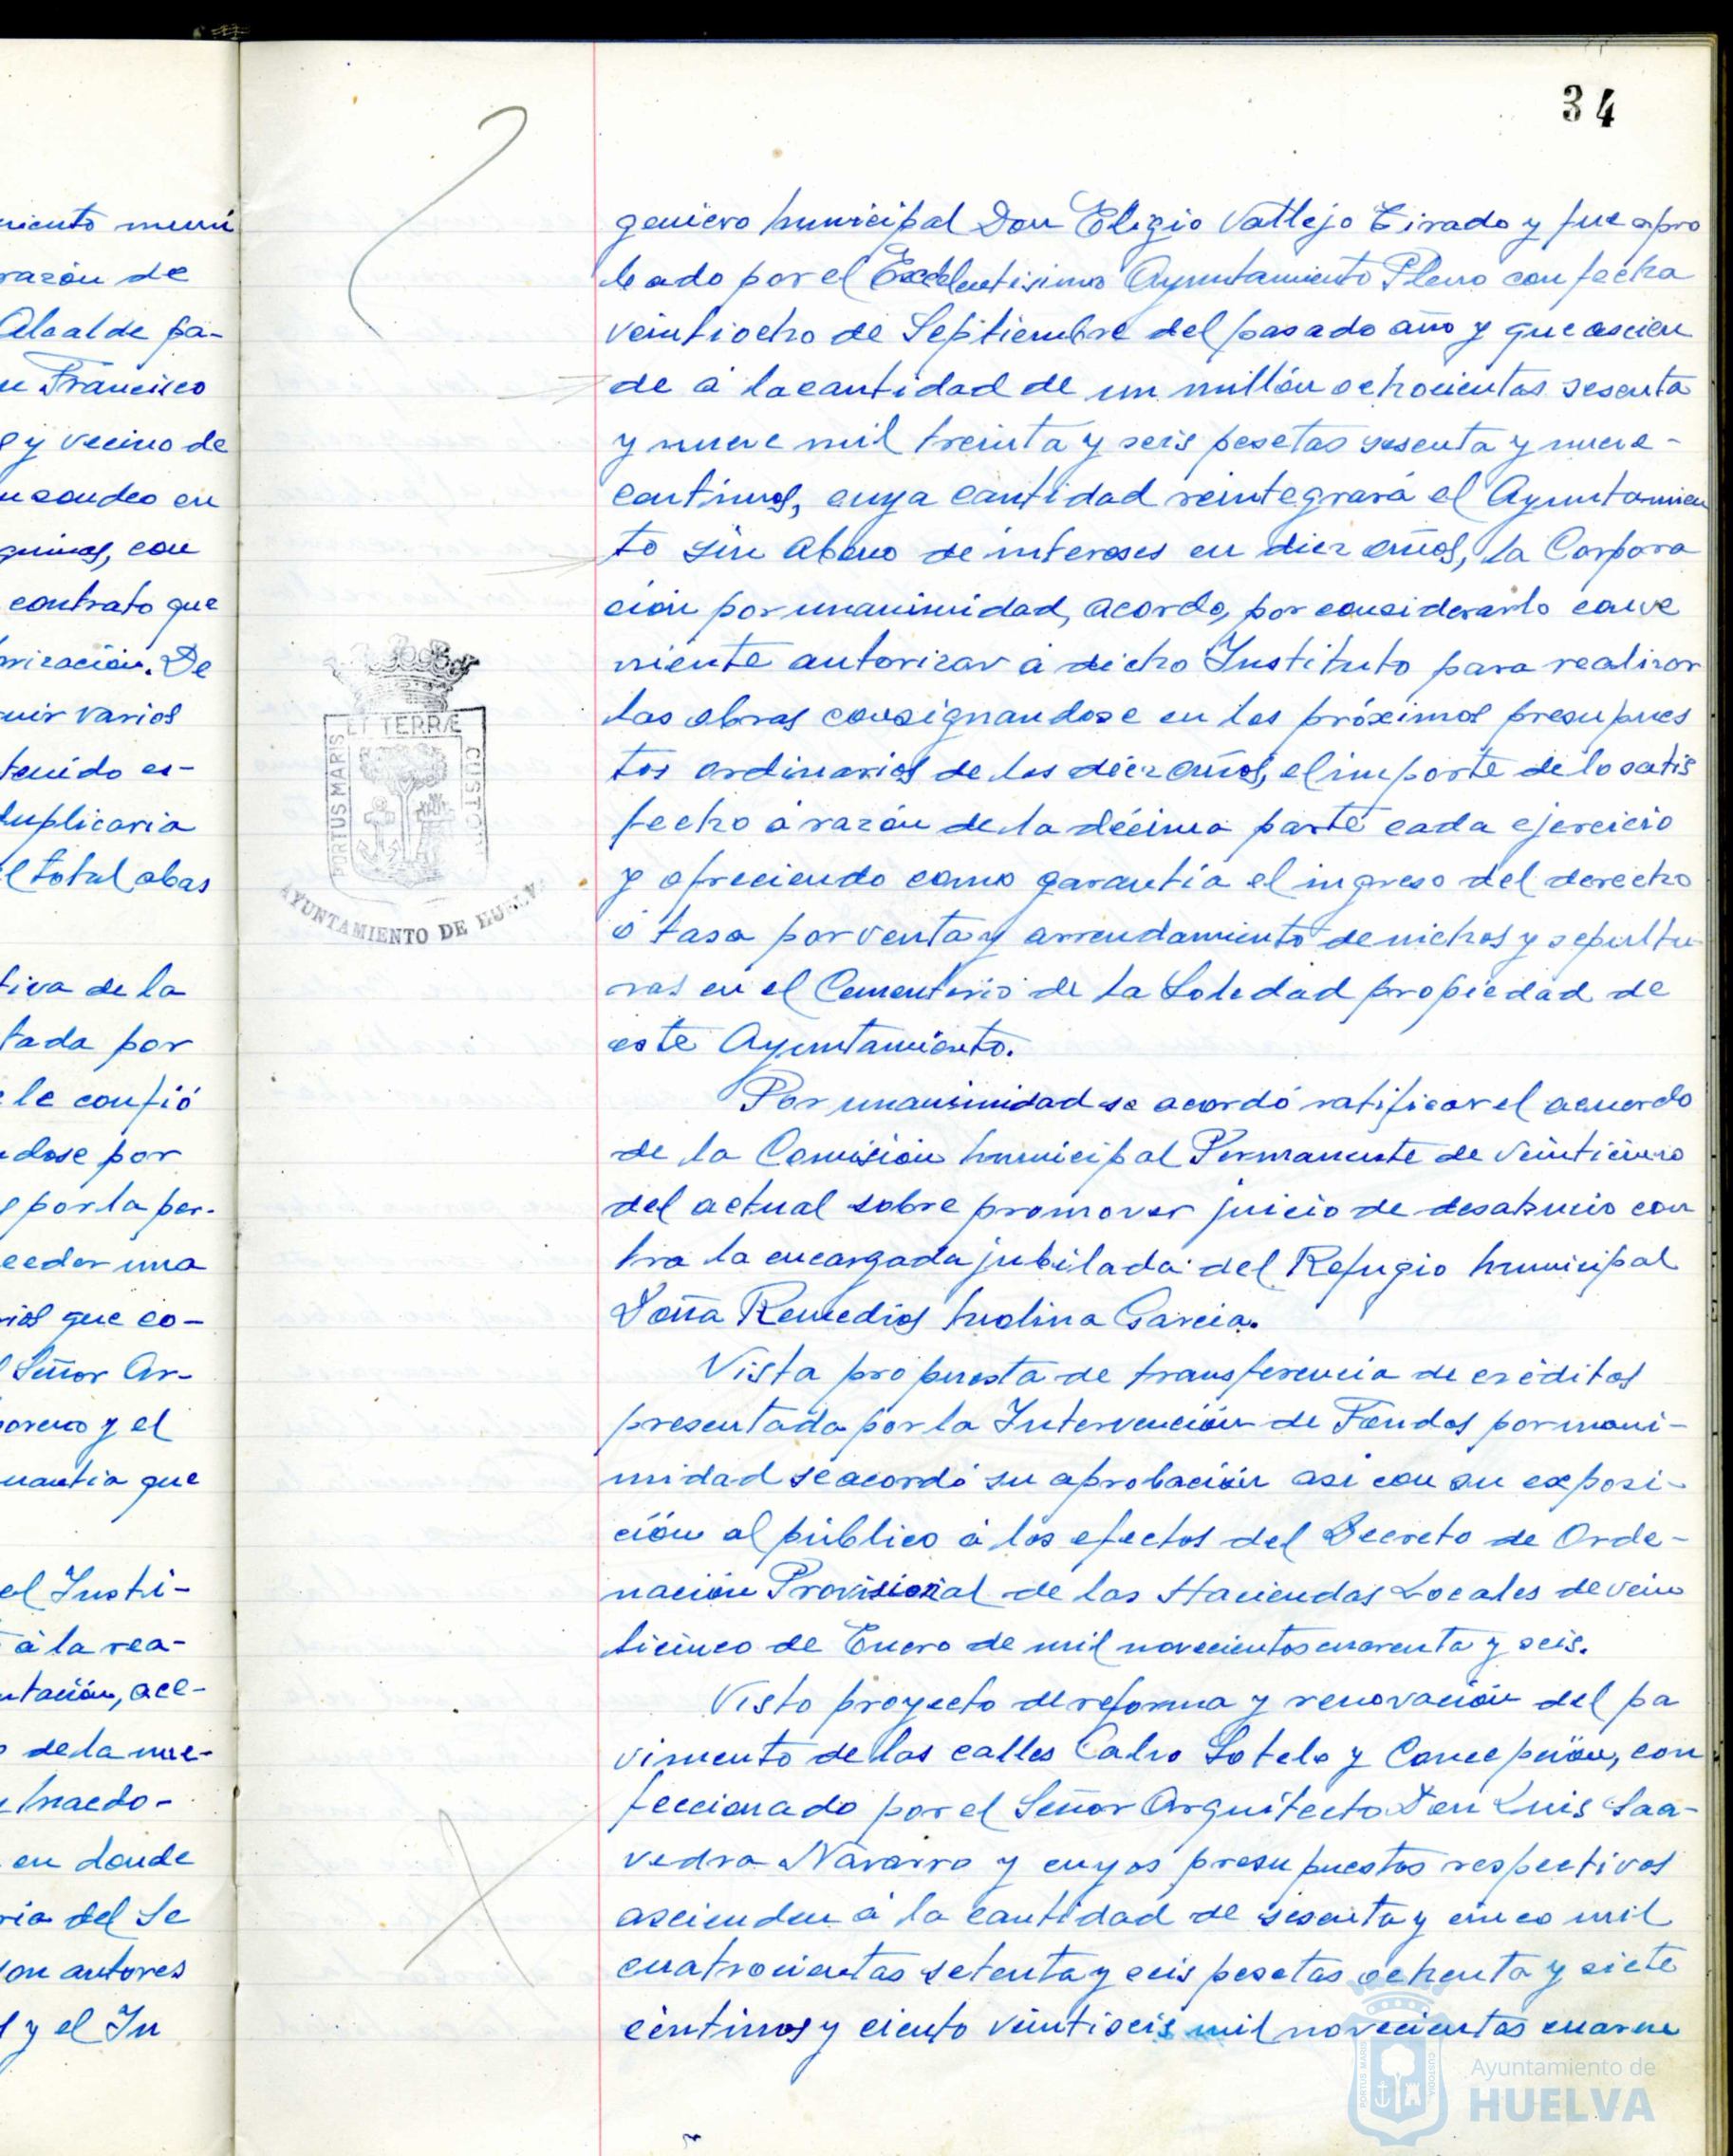 34
niento muni
razón de
Alcalde pa-
n Francisco
e y vecino de
n sondeo en
quinas, con
contrato que
rización. De
uir varios
tenido es-
duplicaria
el total abas
tiva de la
tada por
le confió
ndose por
e por la per-
ceder una
rios que co-
l Señor Ar-
oreno y el
uantia que
el Insti-
á la rea-
ntación, ace-
o de la nue-
Macho-
en donde
ria del Se
son autores
s y el In
geniero Municipal Don Eligio Vallejo Tirado y fue apro
bado por el Excelentisimo Ayuntamiento Pleno con fecha
veintiocho de Septiembre del pasado año y que ascien
de á la cantidad de un millón ochocientas sesenta
y nueve mil treinta y seis pesetas sesenta y nueve-
centimos, cuya cantidad reintegrará el Ayuntamien
to sin abono de intereses en diez años, la Corpora
ción por unanimidad, acordo, por considerarlo conve
niente autorizar á dicho Instituto para realizar
las obras consignandose en los próximos presupues
tos ordinarios de los diez años, el importe de lo satis
fecho á razón de la décima parte cada ejercicio
y ofreciendo como garantía el ingreso del derecho
ó tasa por venta y arrendamiento de nichos y sepultu-
ras en el Cementerio de la Soledad propiedad de
este Ayuntamiento.
Por unanimidad se acordó ratificar el acuerdo
de la Comisión Municipal Permanente de veinticinco
del actual sobre promover juicio de desahucio con
tra la encargada jubilada del Refugio Municipal
Doña Remedios Molina Garcia.
Vista propuesta de transferencia de créditos
presentada por la Intervención de Fondos por unani-
midad se acordó su aprobación asi con su exposi-
ción al público á los efectos del Decreto de Orde-
nación Provisional de las Haciendas Locales de vein
ticinco de Enero de mil novecientos cuarenta y seis.
Visto proyecto de reforma y renovación del pa
vimento de las calles Calvo Sotelo y Concepción, con
feccionado por el Señor Arquitecto Don Luis Saa-
vedra Navarro y cuyos presupuestos respectivos
ascienden á la cantidad de sesenta y cinco mil
cuatrocientas setenta y seis pesetas ochenta y siete
centimos y ciento veintiseis mil novecientas cuaren
PORTUS MARIS ET TERRÆ CUSTOD
AYUNTAMIENTO DE HUELVA
PORTUS MARIS CUSTODIA
Ayuntamiento de
HUELVA